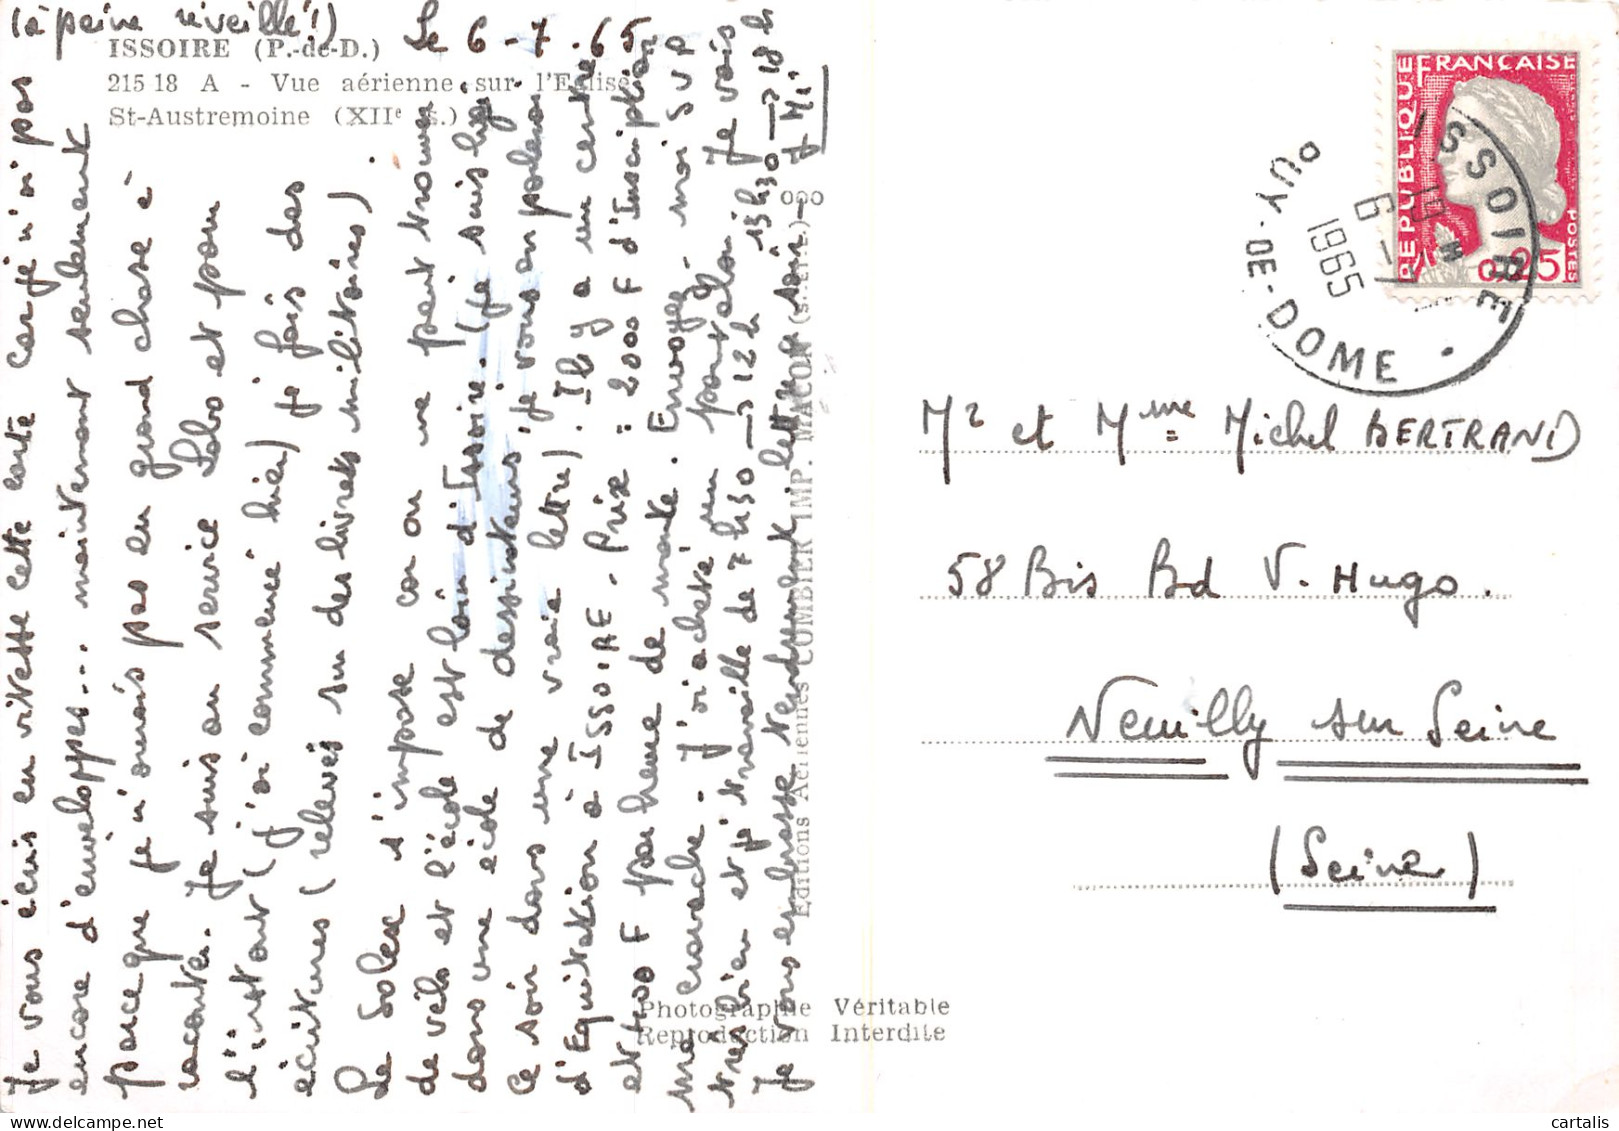 (à peine réveillé !)
Le 6-7-65
ISSOIRE (P.-de-D.)
215 18 A - Vue aérienne sur l'Eglise
St-Austremoine (XIIe s.)
Je vous écris en vitesse cette carte car je n'ai pas
encore d'enveloppes... maintenant seulement
parce que je n'aurais pas eu grand chose à
raconter. Je suis au service Labo et pour
l'instant (j'ai commencé hier) je fais des
écritures (relevés sur des livrets militaires).
Le Solex s'impose car on ne peut trouver
de vélo et l'école est loin d'Issoire. (je suis
dans une école de dessinateurs : je vous en parlerai
ce soir dans une vraie lettre). Il y a un centre
d'Equitation à ISSOIRE. Prix : 2000 F d'Inscription
et 400 F par heure de monte. Envoyez-moi SVP
ma cravache. J'ai acheté un pantalon. Je vais
très bien et je travaille de 7 h 30 → 12 h 13 h 30 → 18 h
Je vous embrasse tendrement lettre ce soir -
Mi.
Editions Aériennes COMBIER IMP. MACON (S.-et-L.)
Photographie Véritable
Reproduction Interdite
REPUBLIQUE FRANÇAISE
POSTES
0,25
ISSOIRE
PUY-DE-DOME
19 H
6-7
1965
Mr et Mme Michel BERTRAND
58 Bis Bd V. Hugo.
Neuilly sur Seine
(Seine)
cartalis